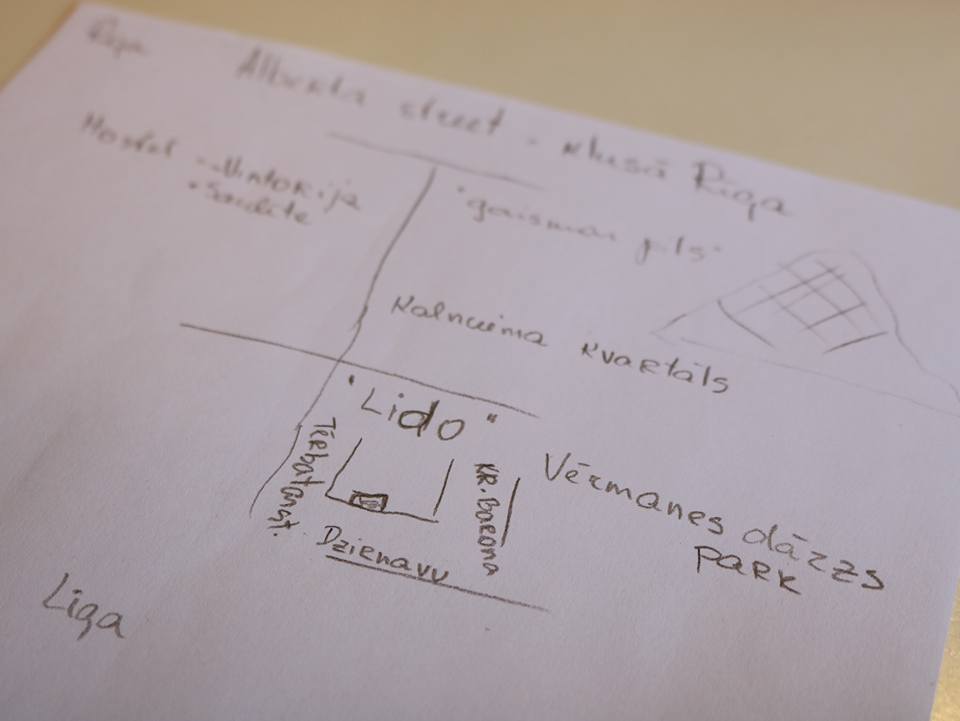 Riga
Alberta street - klusā Riga
Hostel
"gaismas pils"
Kalnciema kvartāls
"Lido"
Tērbatas st.
KR. Barona
Dzirnavu
Vērmanes dārzs
PARK
Liga